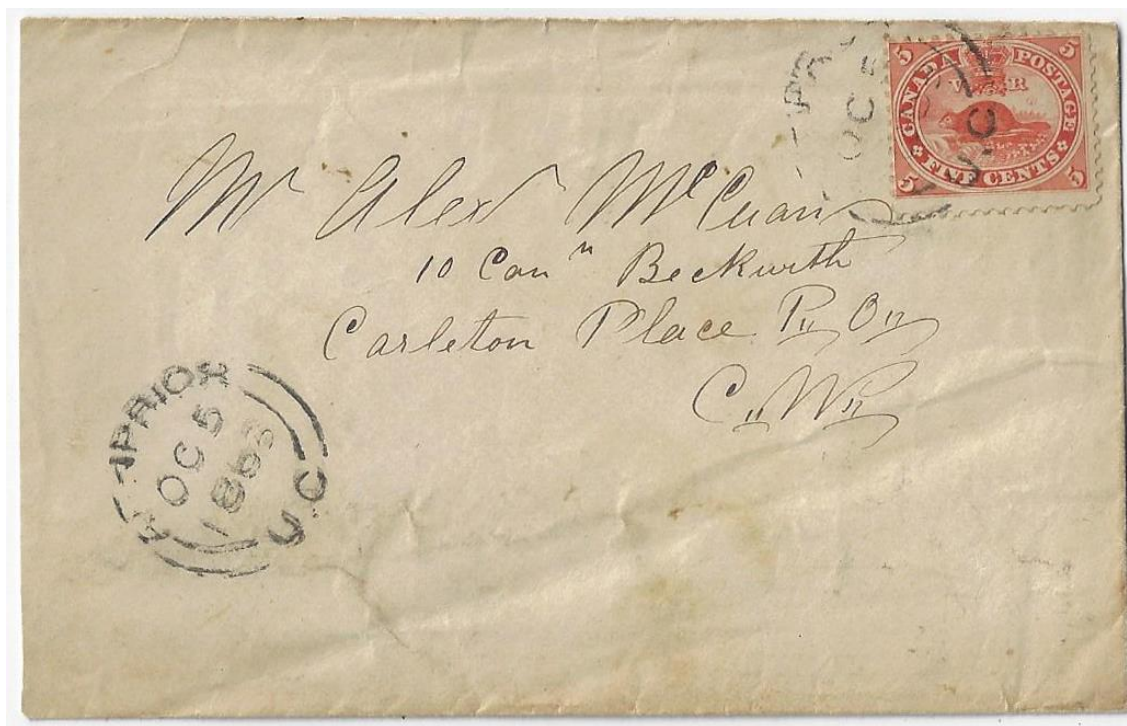 5 5
CANADA POSTAGE
V R
FIVE CENTS
5 5
OC 5
U.C
Mr Alex McCuan
10 Conn Beckwith
Carleton Place P,, O,,
C,, W,,
PRIOR
OC 5
1863
U.C